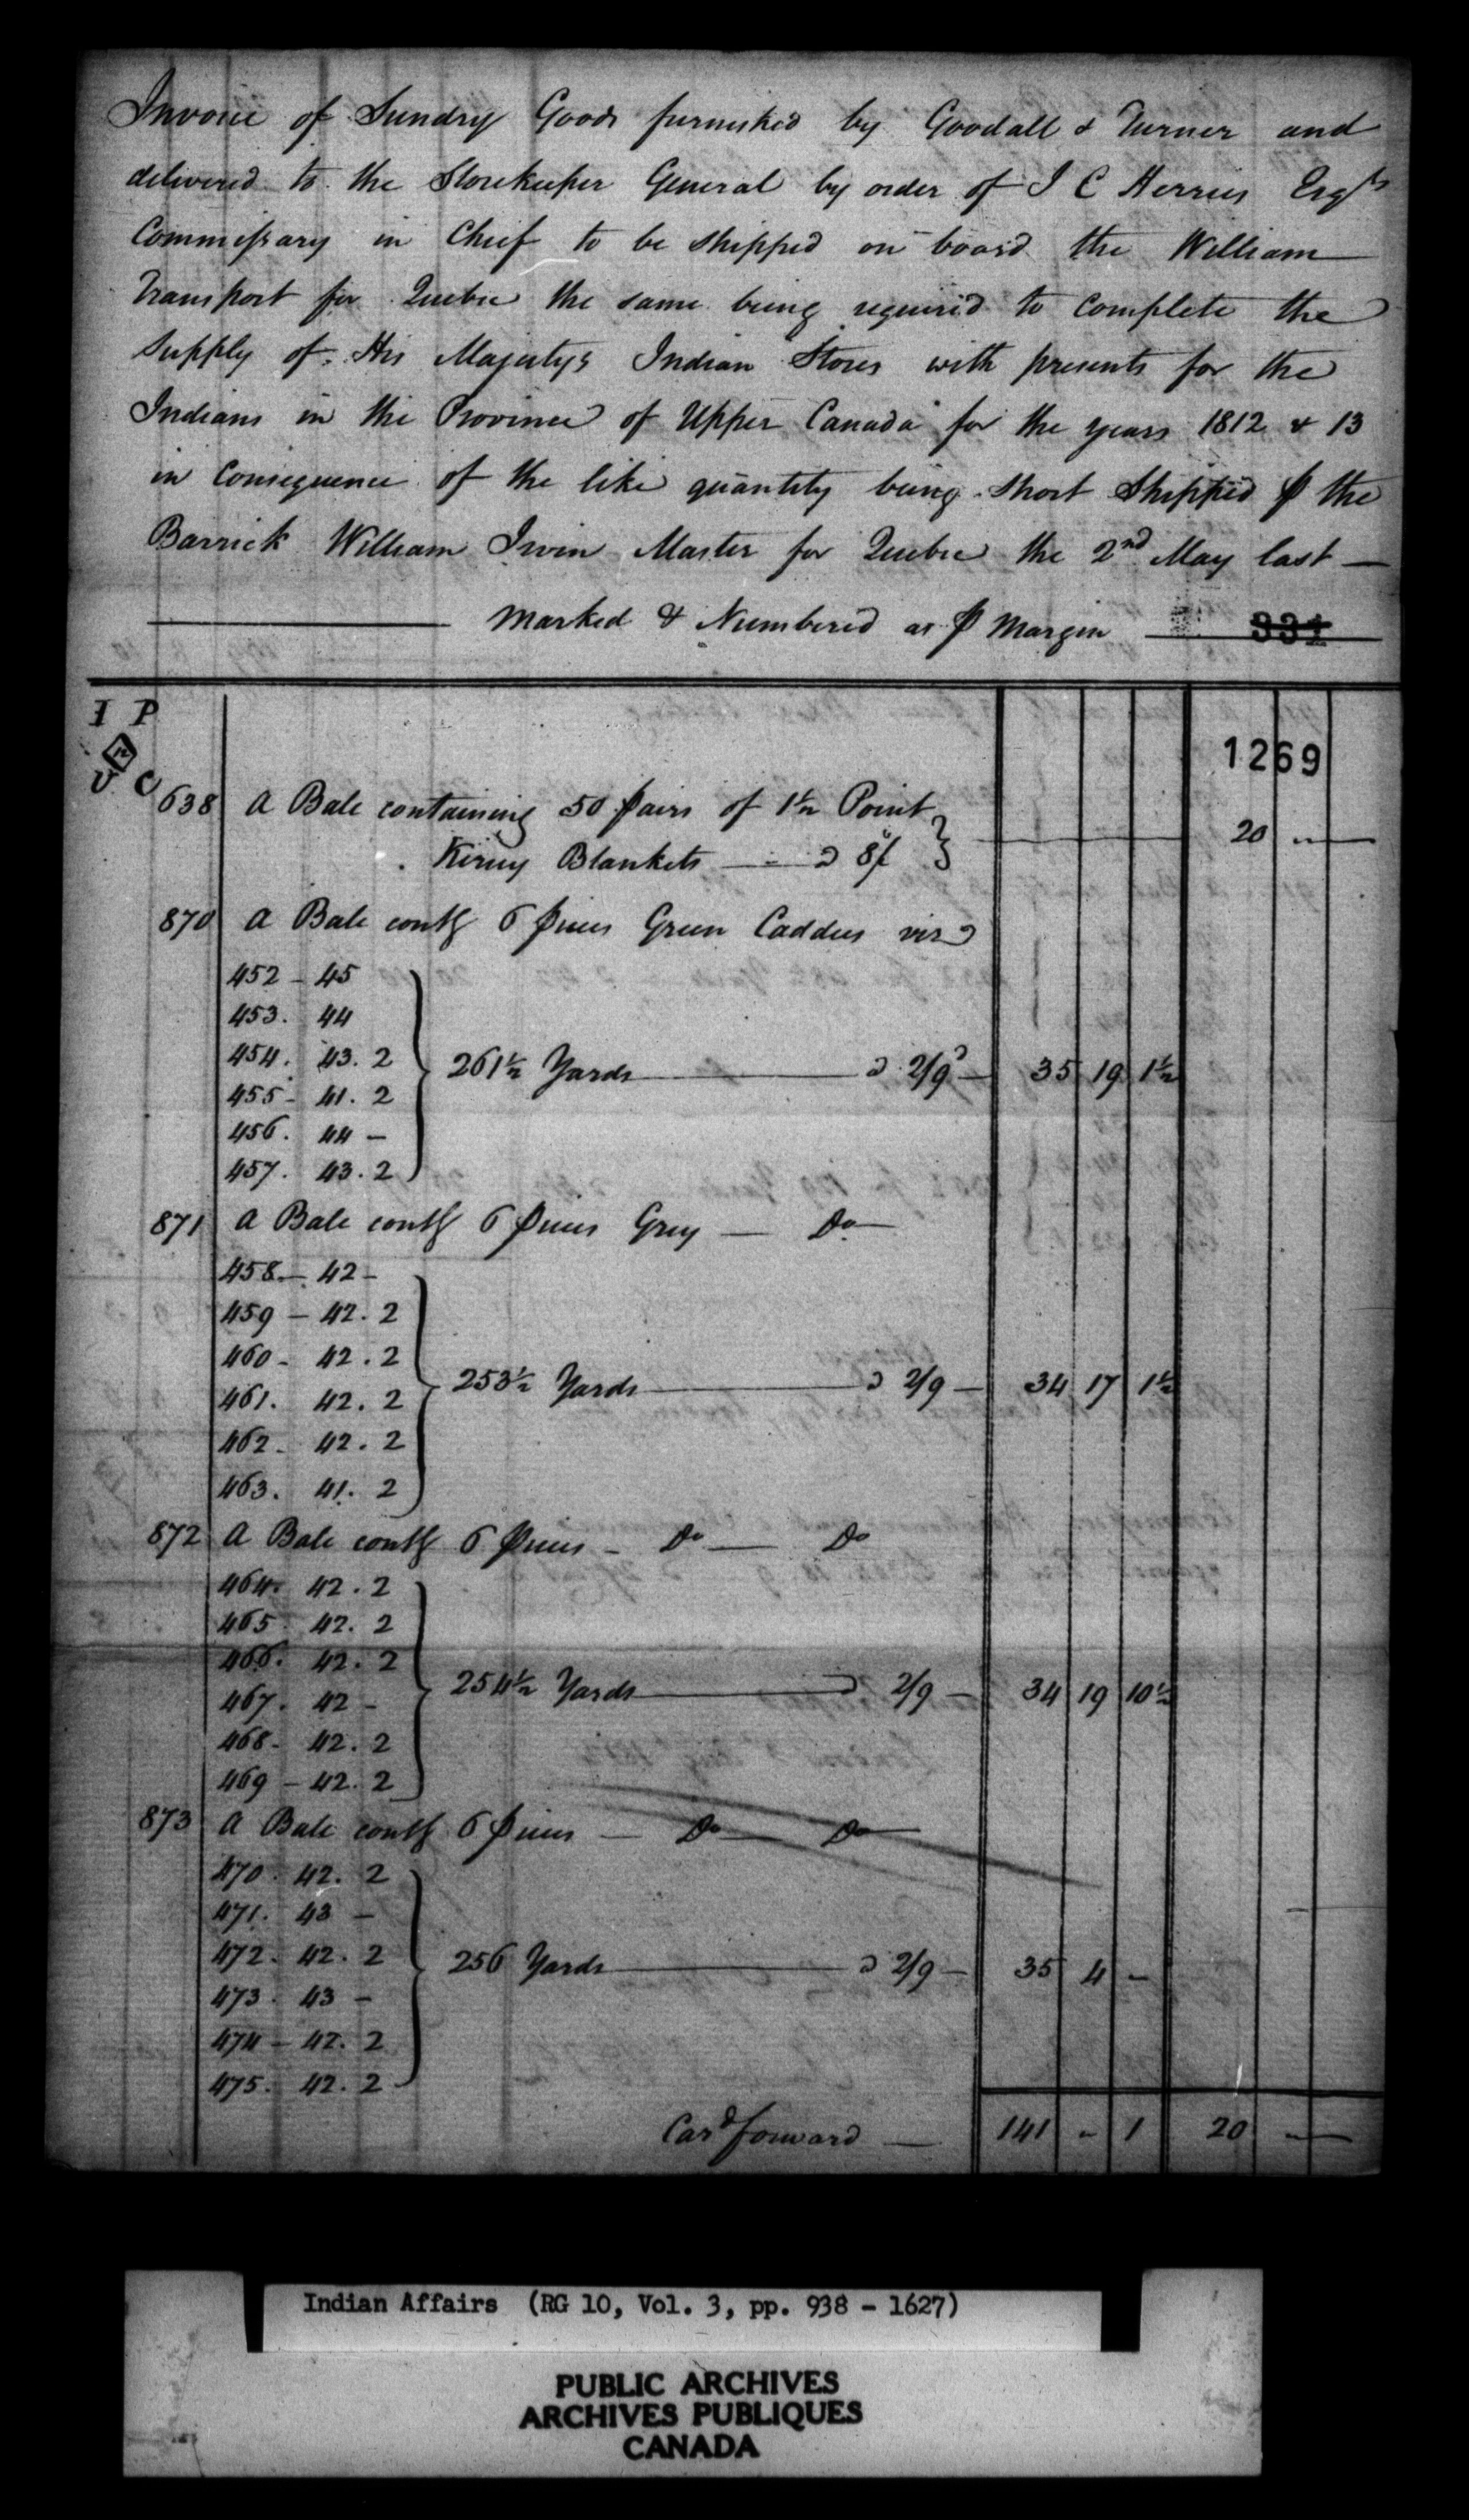 Invoice of Sundry Goods furnished by Goodall & Turner and
delivered to the Storekeeper General by order of J C Herries Esqr
Commissary in Chief to be shipped on board the William
Transport for Quebec the same being required to complete the
Supply of His Majestys Indian Stores with presents for the
Indians in the Province of Upper Canada for the years 1812 & 13
in consequence of the like quantity being short Shipped ⅌ the
Barrick William Irvin Master for Quebec the 2nd May last —
Marked & Numbered as ⅌ Margin — 331
I P
U C
1269
638 A Bale containing 50 pairs of 1½ Point
Kersey Blankets — a 8/ 20 " —
870 A Bale contg 6 pieces Green Caddies viz
452 - 45
453. 44
454. 43. 2
261½ Yards — a 2/9d — 35 19 1½
455 - 41. 2
456. 44 -
457. 43. 2
871 A Bale contg 6 pieces Grey — Do
458 - 42 -
459 - 42. 2
460 - 42. 2
253½ Yards — a 2/9 — 34 17 1½
461. 42. 2
462 - 42. 2
463. 41. 2
872 A Bale contg 6 pieces - Do — Do
464. 42. 2
465 42. 2
466. 42. 2
254½ Yards — a 2/9 — 34 19 10½
467. 42 -
468 - 42. 2
469 - 42. 2
873 A Bale contg 6 pieces — Do — Do
470. 42. 2
471. 43 -
472 - 42. 2
256 Yards — a 2/9 — 35 4 -
473. 43 -
474 - 42. 2
475. 42. 2
Card forward — 141 " 1 20 " —
Indian Affairs (RG 10, Vol. 3, pp. 938 - 1627)
PUBLIC ARCHIVES
ARCHIVES PUBLIQUES
CANADA